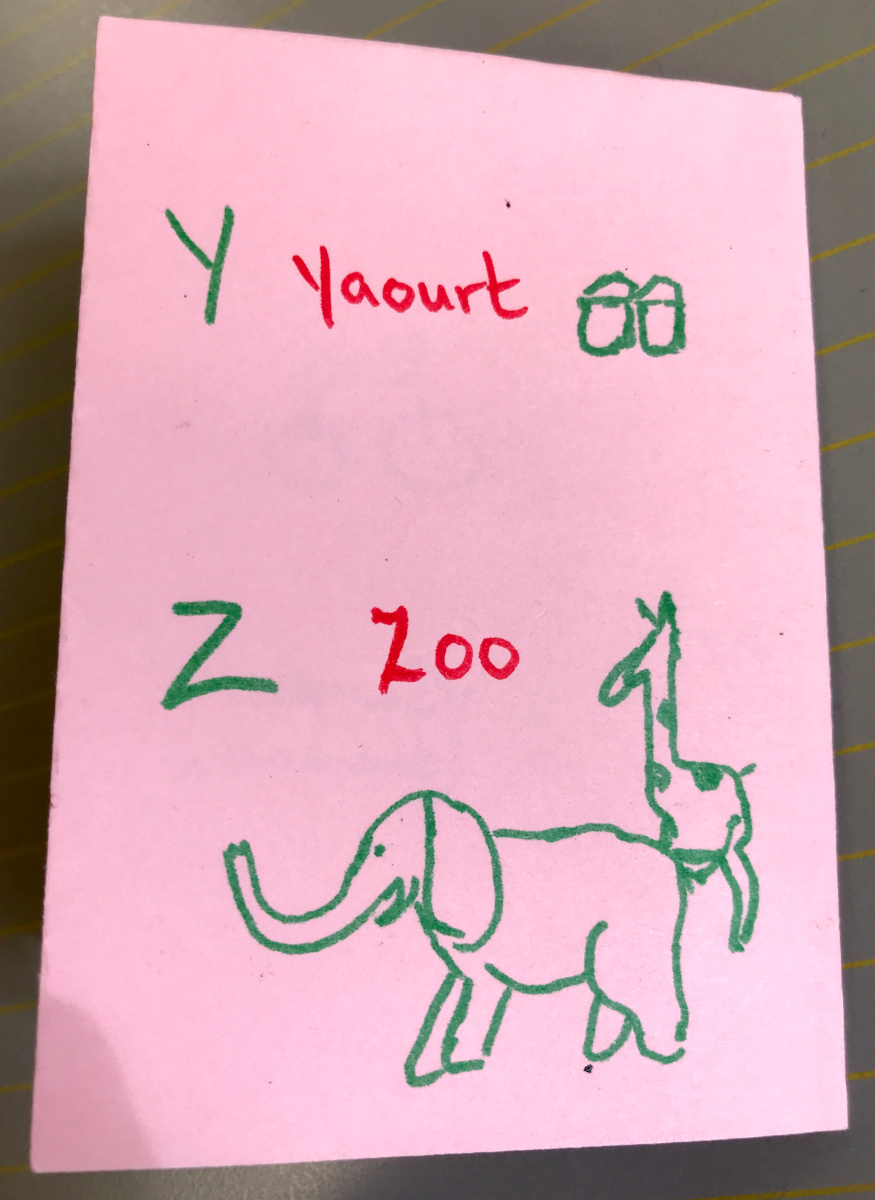 Y Yaourt
Z Zoo